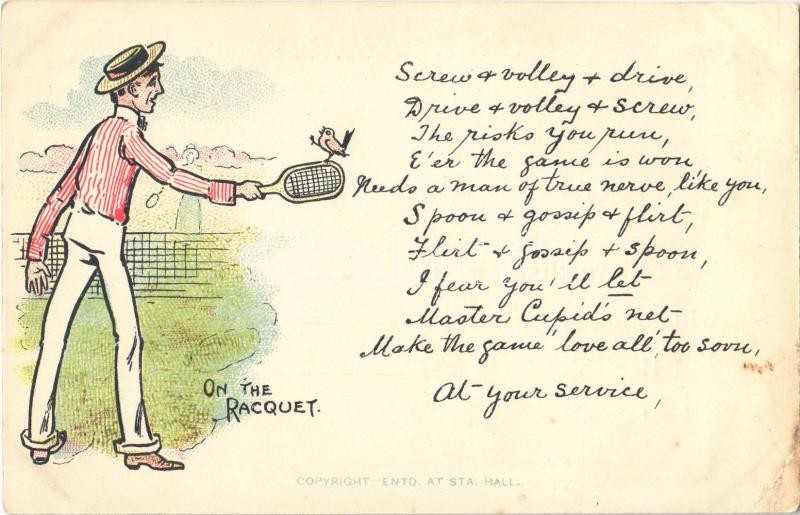 Screw & volley & drive,
Drive & volley & screw,
The risks you run,
E'er the game is won
Needs a man of true nerve, like you,
Spoon & gossip & flirt,
Flirt & gossip & spoon,
I fear you'll let
Master Cupid's net
Make the game 'love all' too soon,
At your service,
ON THE
RACQUET.
COPYRIGHT—ENTD. AT STA. HALL.